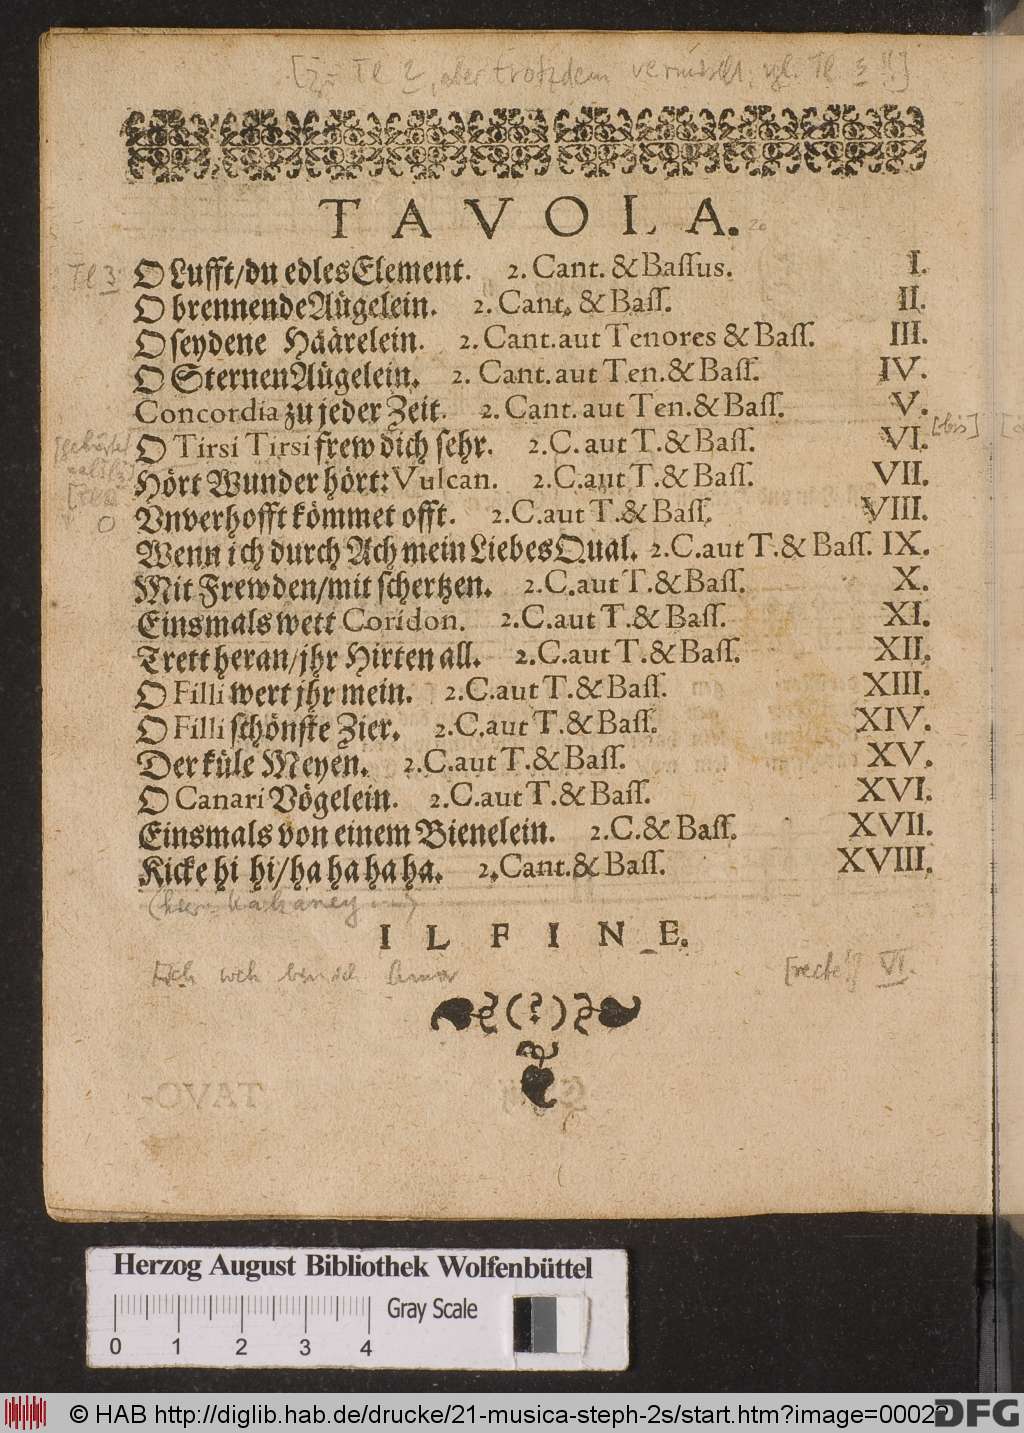 [z. Tl 2, aber trotzdem vermischt, vgl. Tl 3 !!]
TAVOLA.
Tl 3: O Lufft/du edles Element. 2. Cant. & Baſſus. I.
O brennende Aügelein. 2. Cant. & Baſſ. II.
O ſeydene Häärelein. 2. Cant. aut Tenores & Baſſ. III.
O Sternen Aügelein. 2. Cant. aut Ten. & Baſſ. IV.
Concordia zu jeder Zeit. 2. Cant. aut Ten. & Baſſ. V.
O Tirsi Tirsi frew dich ſehr. 2.C. aut T. & Baſſ. VI. [bis]
Hört Wunder hört: Vulcan. 2.C.aut T. & Baſſ. VII.
Vnverhofft kömmet offt. 2.C.aut T.& Baſſ. VIII.
Wenn ich durch Ach mein Liebes Qual. 2.C.aut T.& Baſſ. IX.
Mit Frewden/mit ſchertzen. 2.C.aut T.& Baſſ. X.
Einsmals wett Coridon. 2.C.aut T.& Baſſ. XI.
Trett heran/jhr Hirten all. 2.C.aut T.& Baſſ. XII.
O Filli wert jhr mein. 2.C.aut T.& Baſſ. XIII.
O Filli ſchönſte Zier. 2.C.aut T.& Baſſ. XIV.
Der küle Meyen. 2.C.aut T.& Baſſ. XV.
O Canari Vögelein. 2.C.aut T.& Baſſ. XVI.
Einsmals von einem Bienelein. 2.C.& Baſſ. XVII.
Kicke hi hi/ha ha ha ha. 2.Cant.& Baſſ. XVIII.
IL FINE.
Ach weh bin ich Amor [recte!] VI.
(?)
TAVO-
Herzog August Bibliothek Wolfenbüttel
Gray Scale
0 1 2 3 4
© HAB http://diglib.hab.de/drucke/21-musica-steph-2s/start.htm?image=00022
DFG